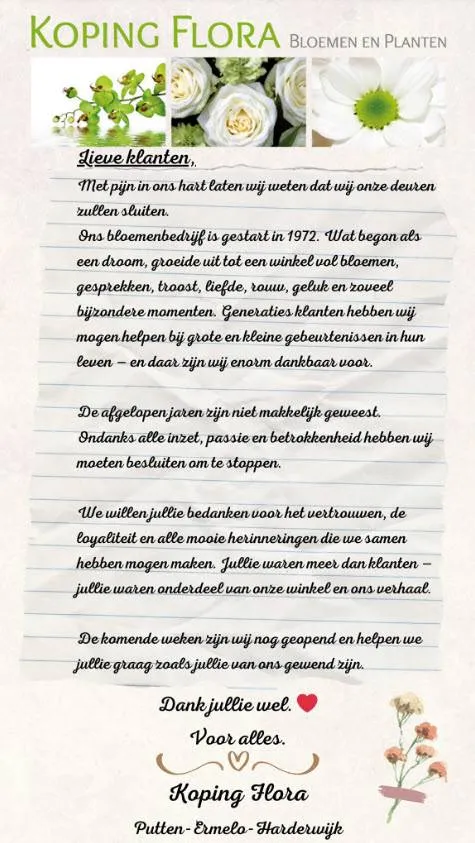 KOPING FLORA BLOEMEN EN PLANTEN
Lieve klanten,
Met pijn in ons hart laten wij weten dat wij onze deuren
zullen sluiten.
Ons bloemenbedrijf is gestart in 1972. Wat begon als
een droom, groeide uit tot een winkel vol bloemen,
gesprekken, troost, liefde, rouw, geluk en zoveel
bijzondere momenten. Generaties klanten hebben wij
mogen helpen bij grote en kleine gebeurtenissen in hun
leven – en daar zijn wij enorm dankbaar voor.
De afgelopen jaren zijn niet makkelijk geweest.
Ondanks alle inzet, passie en betrokkenheid hebben wij
moeten besluiten om te stoppen.
We willen jullie bedanken voor het vertrouwen, de
loyaliteit en alle mooie herinneringen die we samen
hebben mogen maken. Jullie waren meer dan klanten –
jullie waren onderdeel van onze winkel en ons verhaal.
De komende weken zijn wij nog geopend en helpen we
jullie graag zoals jullie van ons gewend zijn.
Dank jullie wel. ❤️
Voor alles.
Koping Flora
Putten-Ermelo-Harderwijk